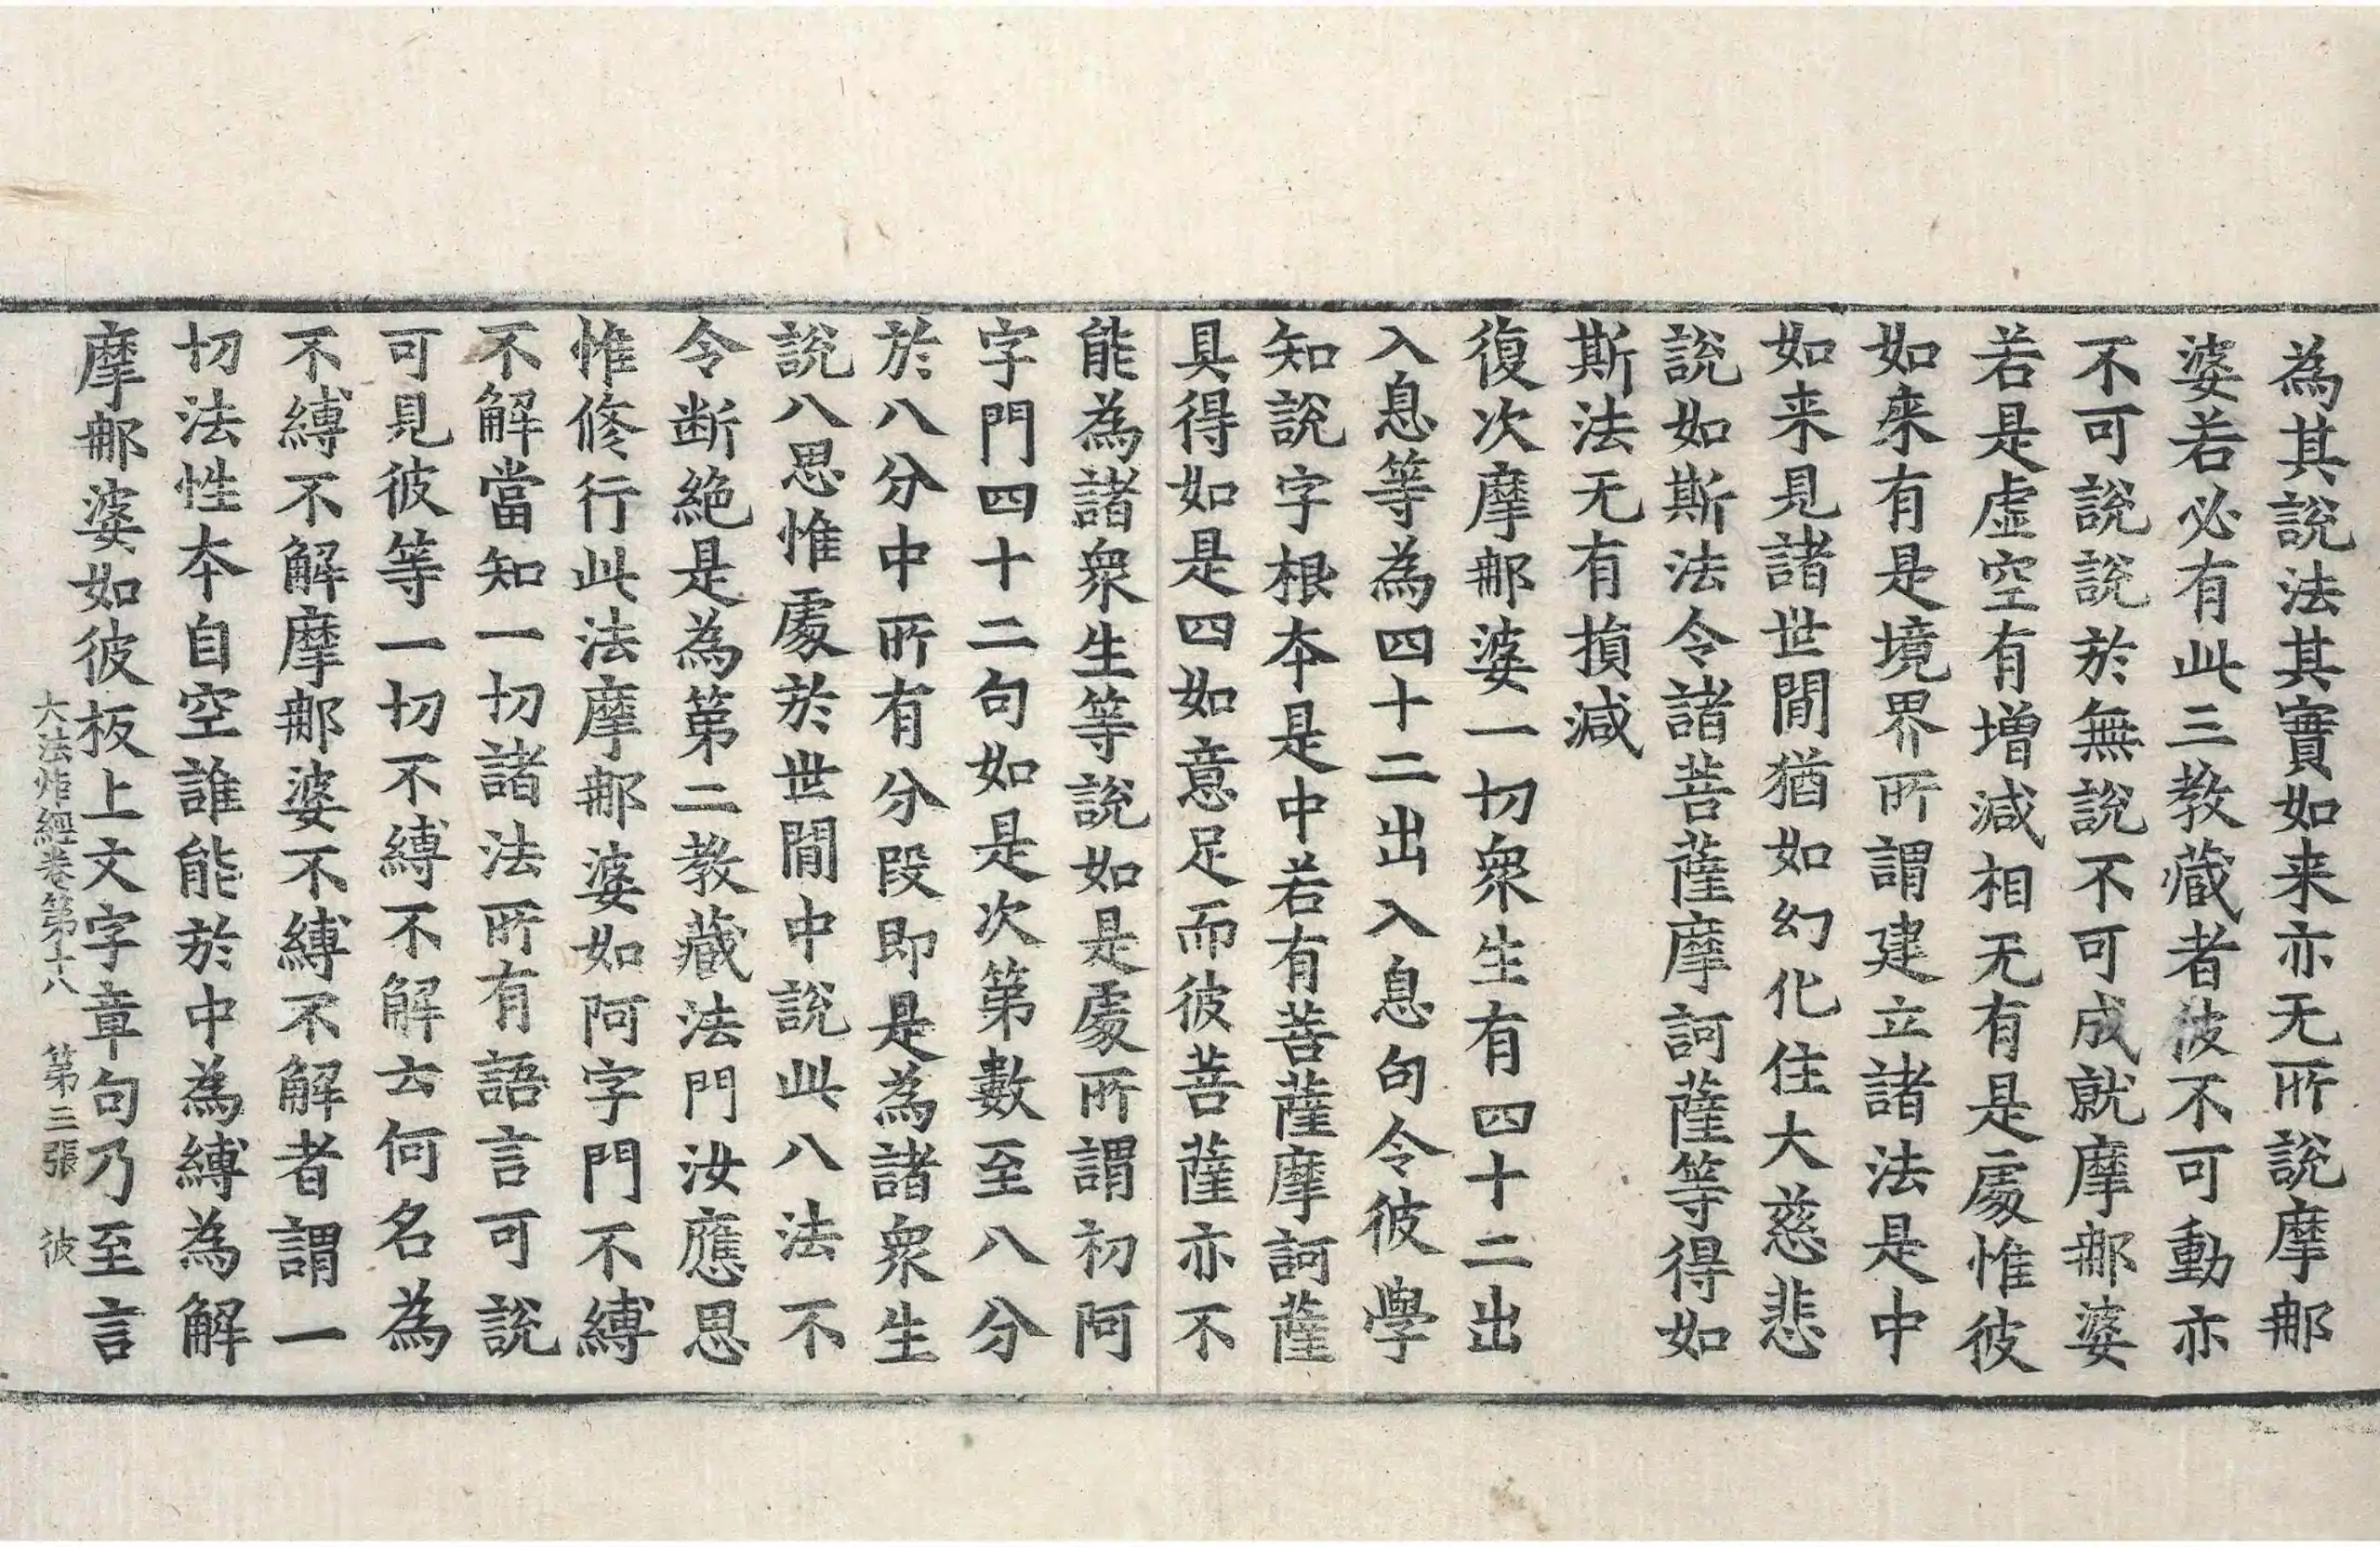 為其說法其實如来亦无所說摩那
婆若必有此三教藏者彼不可動亦
不可說說於無說不可成就摩那婆
若是虛空有增減相无有是處惟彼
如來有是境界所謂建立諸法是中
如来見諸世間猶如幻化住大慈悲
說如斯法令諸菩薩摩訶薩等得如
斯法无有損減
復次摩那婆一切衆生有四十二出
入息等為四十二出入息句令彼學
知說字根本是中若有菩薩摩訶薩
具得如是四如意足而彼菩薩亦不
能為諸衆生等說如是處所謂初阿
字門四十二句如是次第數至八分
於八分中所有分段即是為諸衆生
說八思惟處於世間中說此八法不
令断絕是為第二教藏法門汝應思
惟修行此法摩那婆如阿字門不縛
不解當知一切諸法所有語言可說
可見彼等一切不縛不解云何名為
不縛不解摩那婆不縛不解者謂一
切法性本自空誰能於中為縛為解
摩那婆如彼板上文字章句乃至言
大法炬經卷第十八　第三張　彼